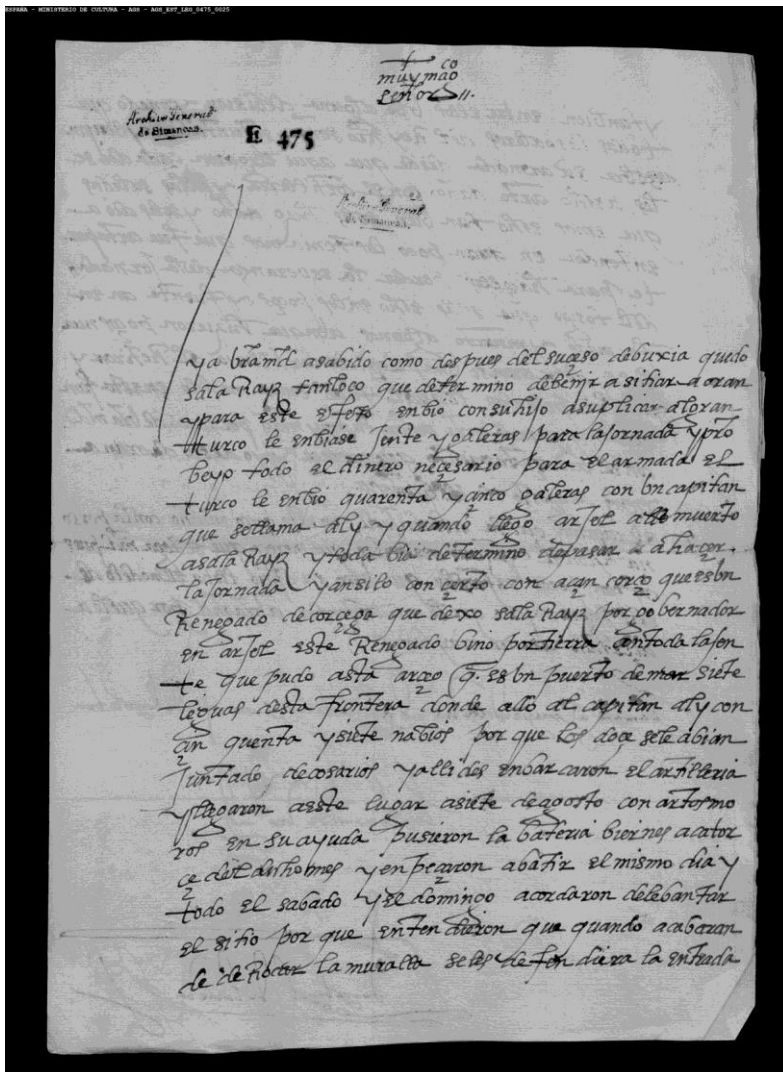 ESPAÑA - MINISTERIO DE CULTURA - AGS - AGS_EST_LEG_0475_0025
+ co
muy mag
señor
Archivo General
de Simancas.
E 475
Archivo General
de Simancas.
ya bra md a sabido como despues del suçeso de buxia quedo
sala Rayz tan loco que determino de benir a sitiar a oran
y para este efeto enbio con su hijo a suplicar al gran
turco le enbiase jente y galeras para la jornada y pro
beyo todo el dinero neçesario para el armada el
turco le enbio quarenta y çinco galeras con bn capitan
que se llama aly y quando llego arjel allo muerto
a sala Rayz y toda bia determino de pasar a haçer
la jornada y ansi lo conçerto con açan corço que es bn
Renegado de corçega que dexo sala Rayz por gobernador
en arjel este Renegado bino por tierra con toda la jen
te que pudo asta arçeo q. es bn puerto de mar siete
leguas desta frontera donde allo al capitan aly con
çin quenta y siete nabios por que los doçe se le abian
juntado de cosarios y alli des enbarcaron el artilleria
y llegaron a este lugar a siete de agosto con artos mo
ros en su ayuda pusieron la bateria biernes a cator
çe del dicho mes y enpeçaron a batir el mismo dia y
todo el sabado y el domingo acordaron de lebantar
el sitio por que entendieron que quando acabaran
de deRocar la muralla se les defendiera la entrada